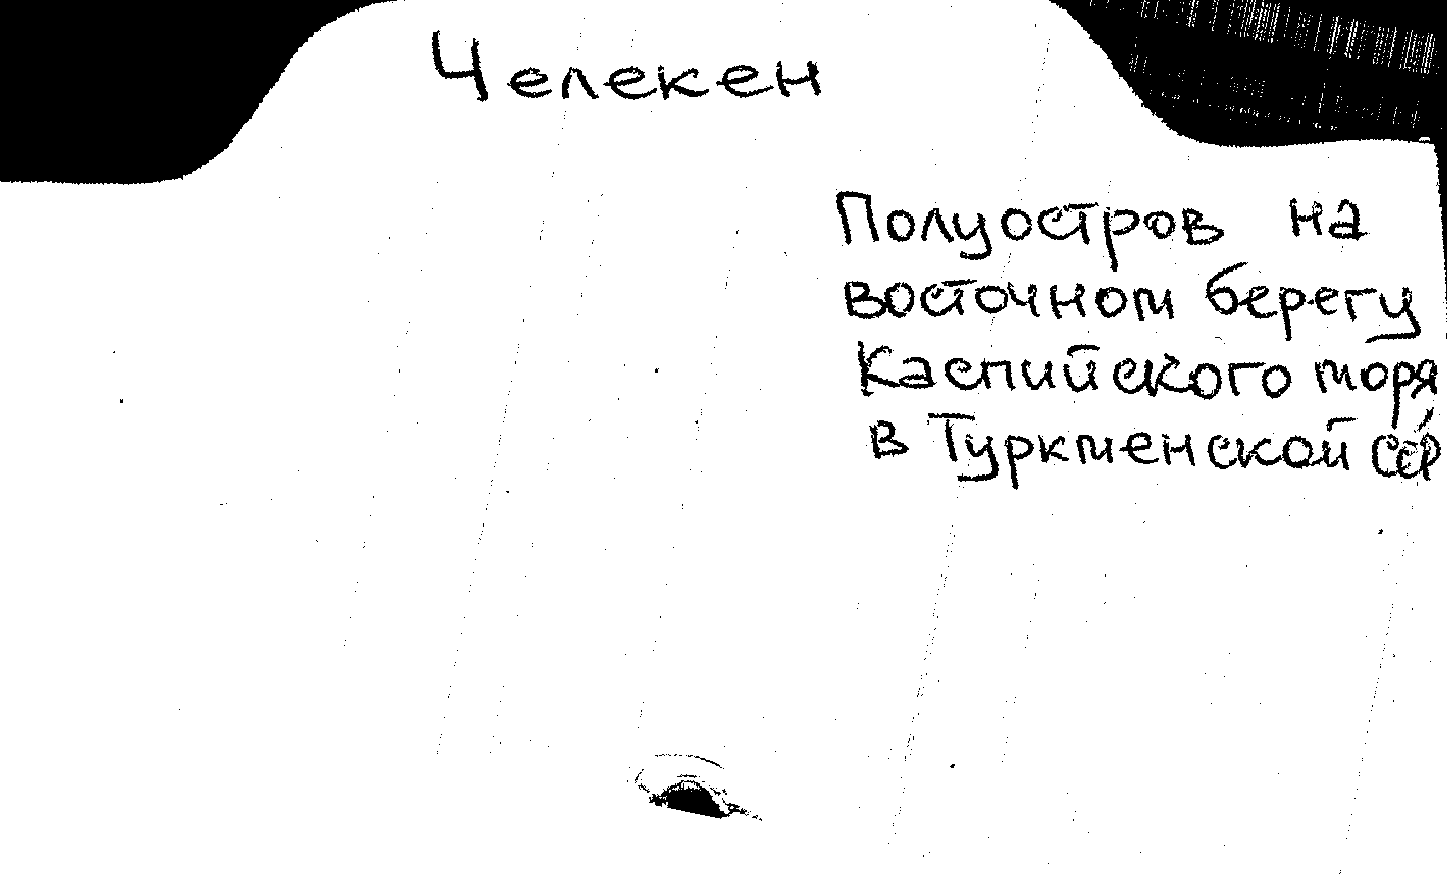 Челекен
Полуостров на
восточном берегу
Каспийского моря
в Туркменской ССР